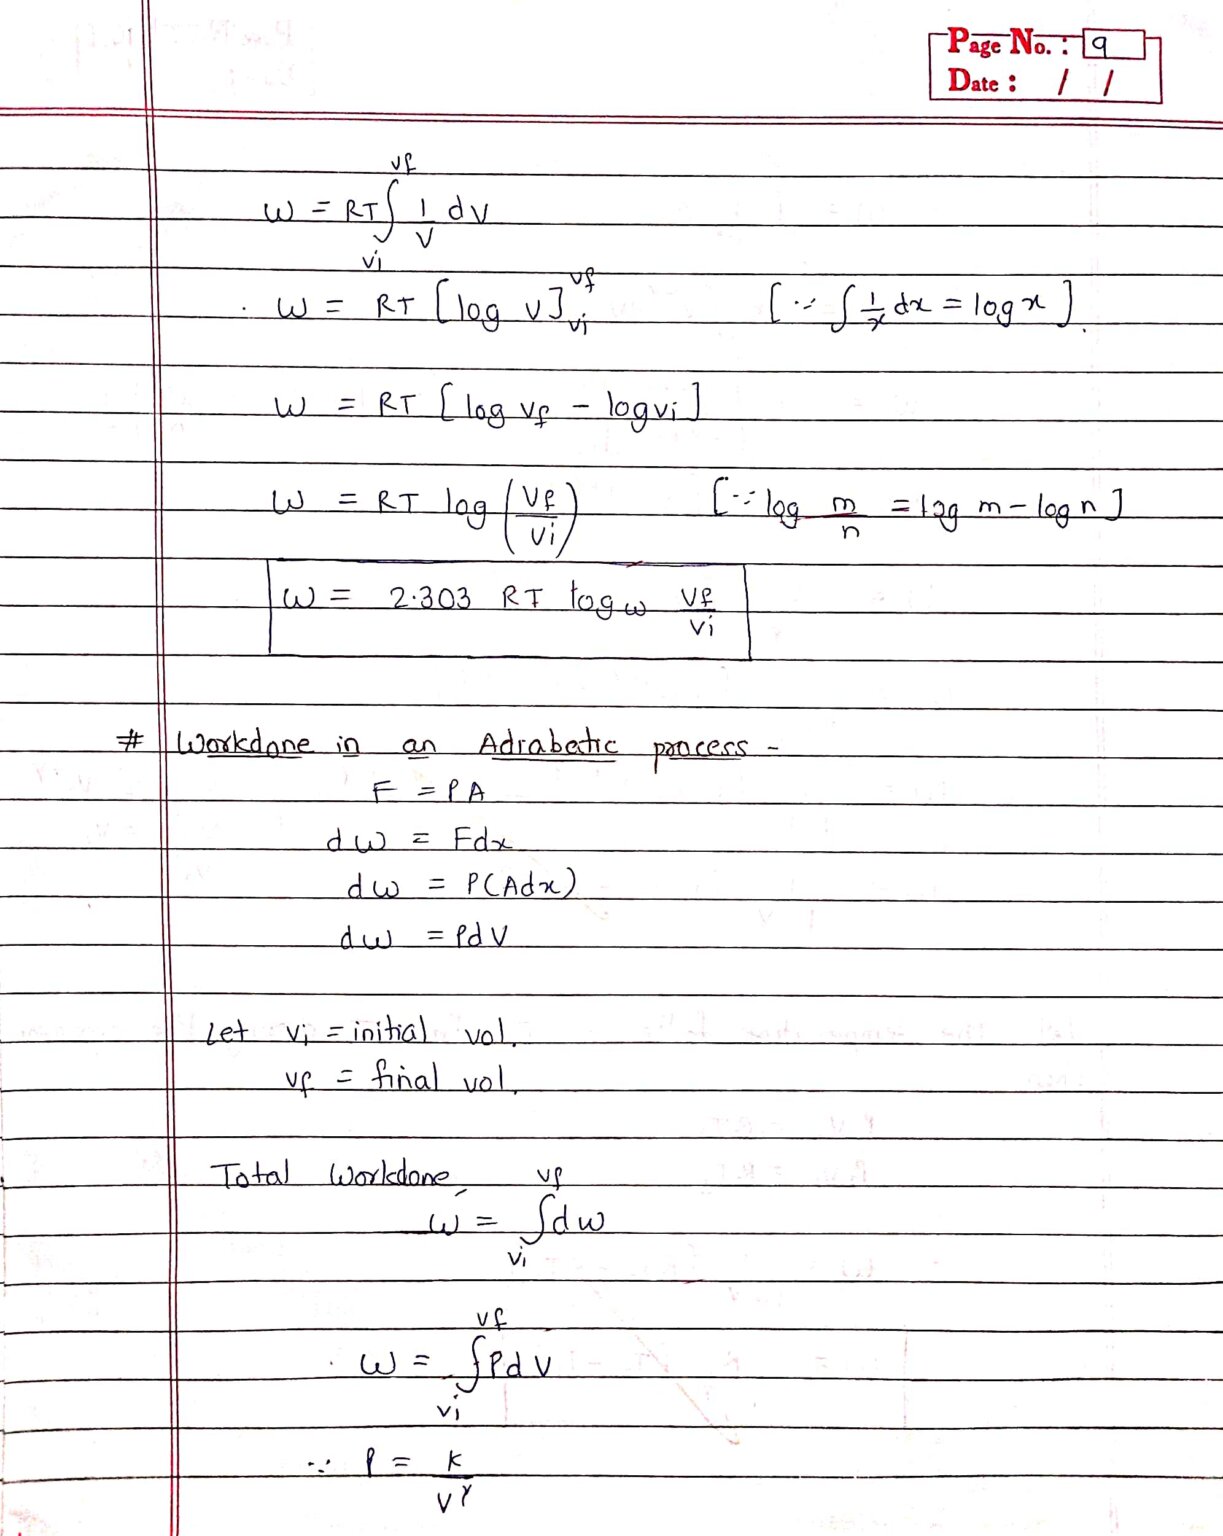 Page No. : 9
Date : / /
W = RT ∫_{Vi}^{Vf} 1/V dV
W = RT [log V]_{Vi}^{Vf} [∵ ∫ 1/x dx = log x].
W = RT [log Vf - log Vi]
W = RT log (Vf/Vi) [∵ log m/n = log m - log n]
W = 2.303 RT log₁₀ Vf/Vi
# Workdone in an Adiabatic process -
F = PA
dw = Fdx
dw = P(Adx)
dw = PdV
Let Vi = initial vol.
Vf = final vol.
Total Workdone,
W = ∫_{Vi}^{Vf} dw
W = ∫_{Vi}^{Vf} PdV
∵ P = K/V^γ